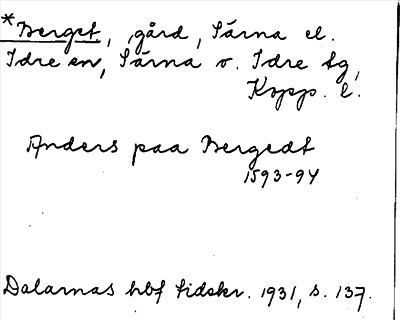 *Berget, gård, Särna el.
Idre sn, Särna o. Idre tg,
Kopp. l.
Anders paa Bergedt
1593-94
Dalarnas hbf tidskr. 1931, s. 137.